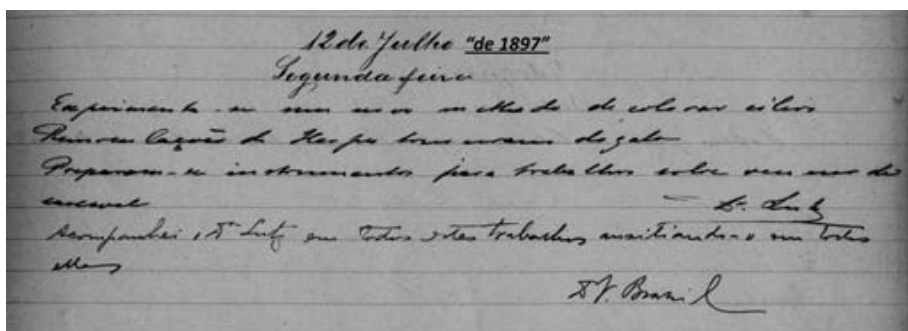 12 de Julho "de 1897"
Segunda feira
Experimenta-se um novo methodo de colorar cilios
Reinoculação de Herpes tonsurans do gato
Preparam-se instrumentos para trabalhos sobre veneno de
cascavel — Dr. Lutz
Acompanhei o Dr. Lutz em todos estes trabalhos auxiliando-o em todos
elles
Dr. V. Brazil